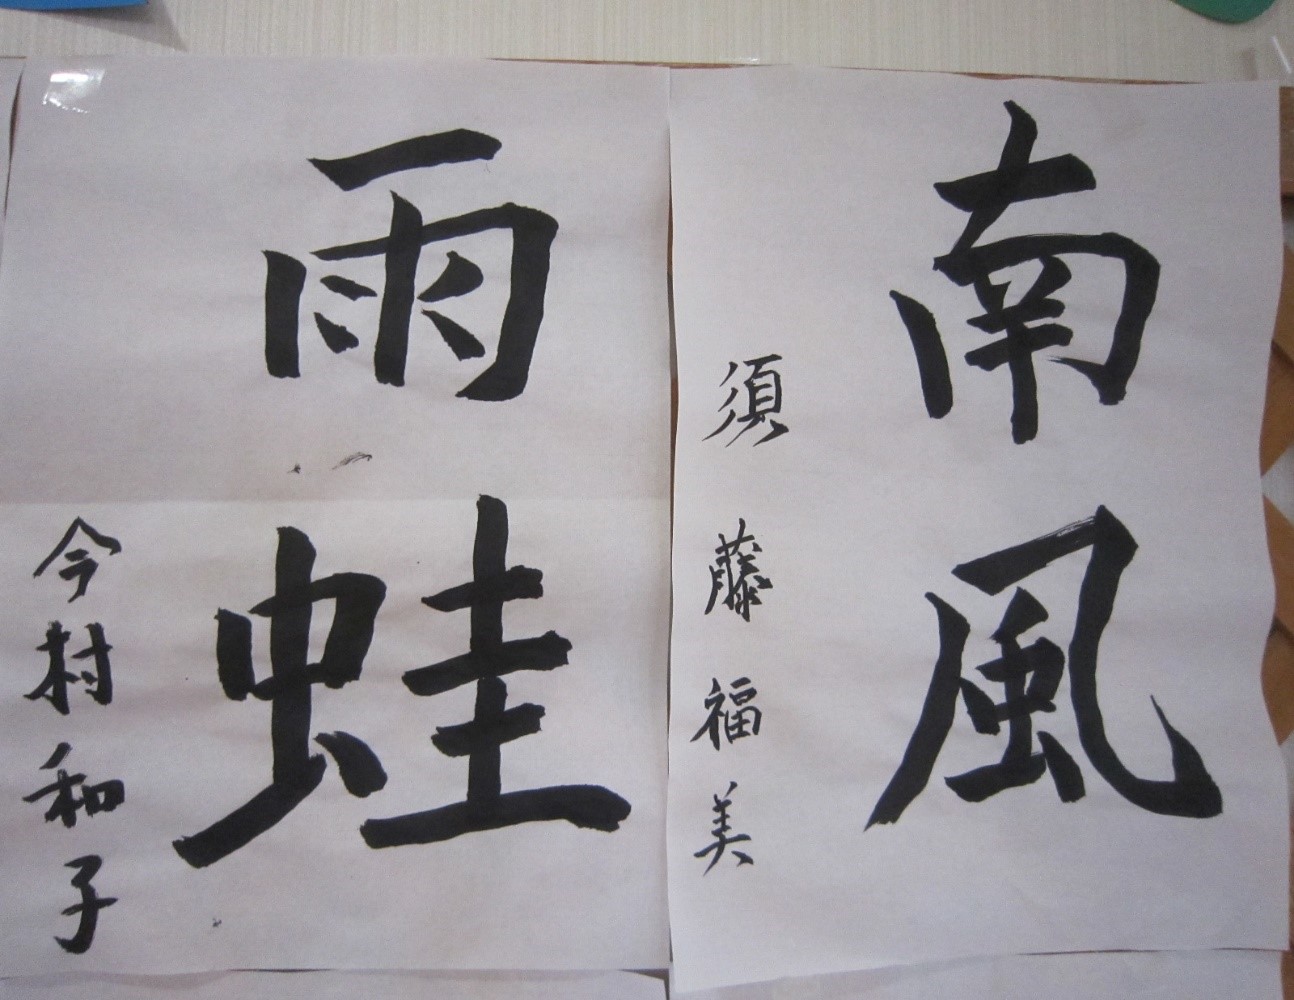 南風
須藤福美
雨蛙
今村和子